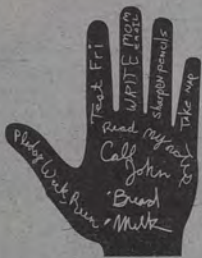 Test Fri
WRITE MOM
EMAIL
Sharpen pencils
Take nap
Pledge Week
Run
Read my notes
Call
John
• Bread
• Milk